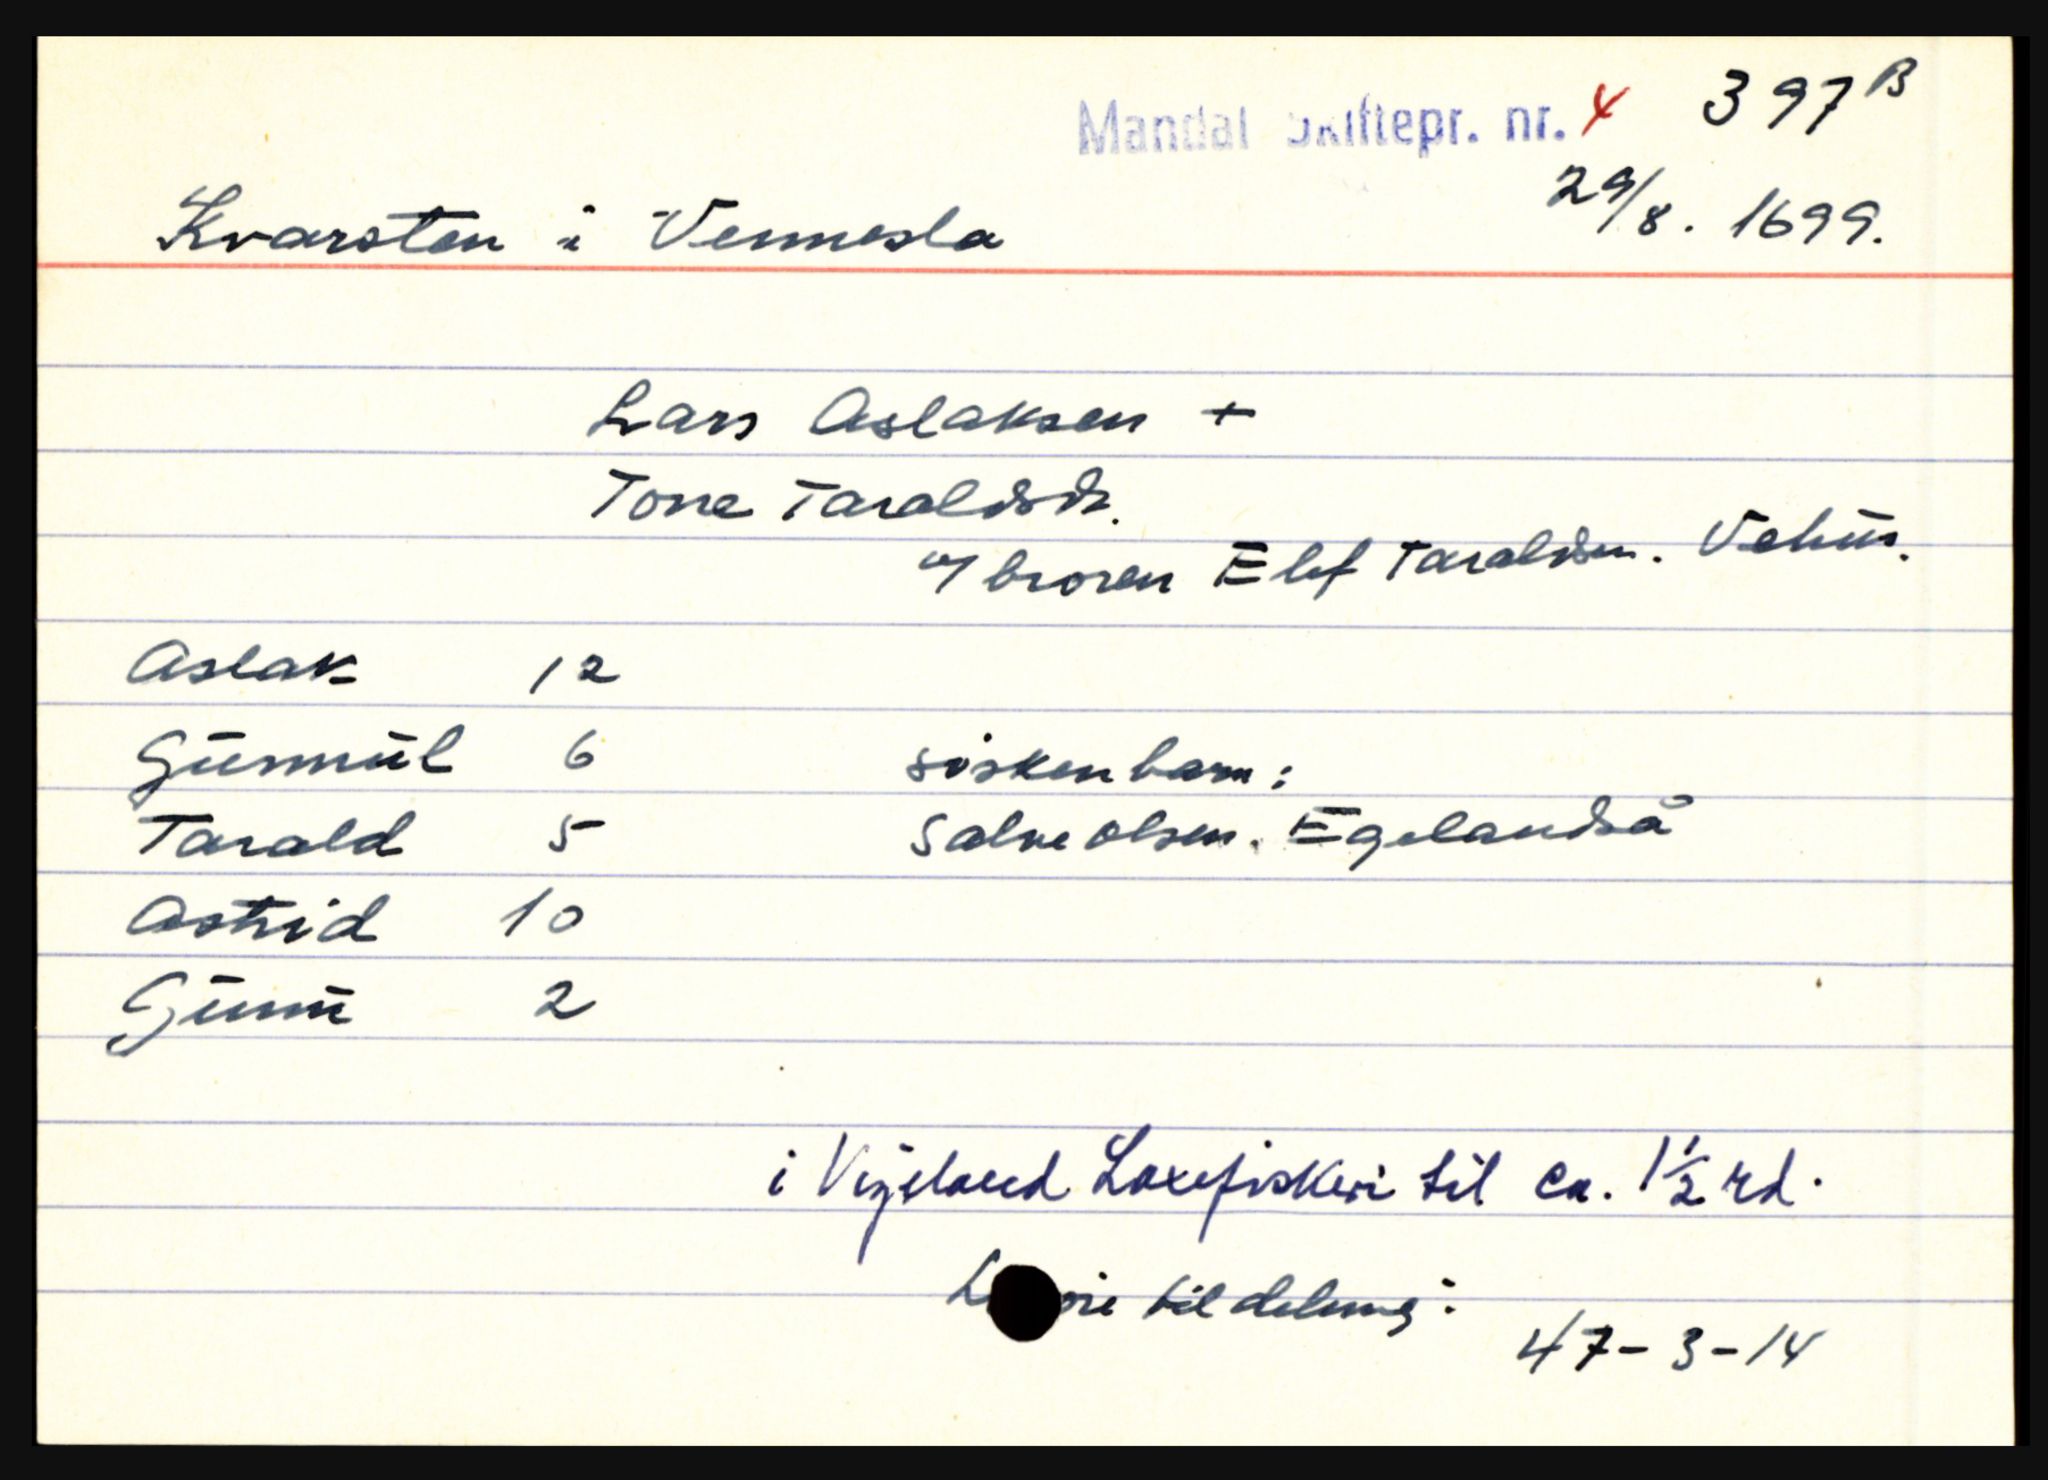 Mandal Skiftepr. nr. 4 397 B
29/8. 1699.
Kvarsten i Vennesla
Lars Aslaksen +
Tone Taraldsdr.
m/ broren Elef Taraldsen. Vehus.
Aslak 12
Gunnul 6 søskenbarn:
Tarald 5 Salve Olsen. Egelandså
Astrid 10
Gunnu 2
i Vigeland Laxefiskeri til ca. 1 1/2 rd.
til deling:
47-3-14